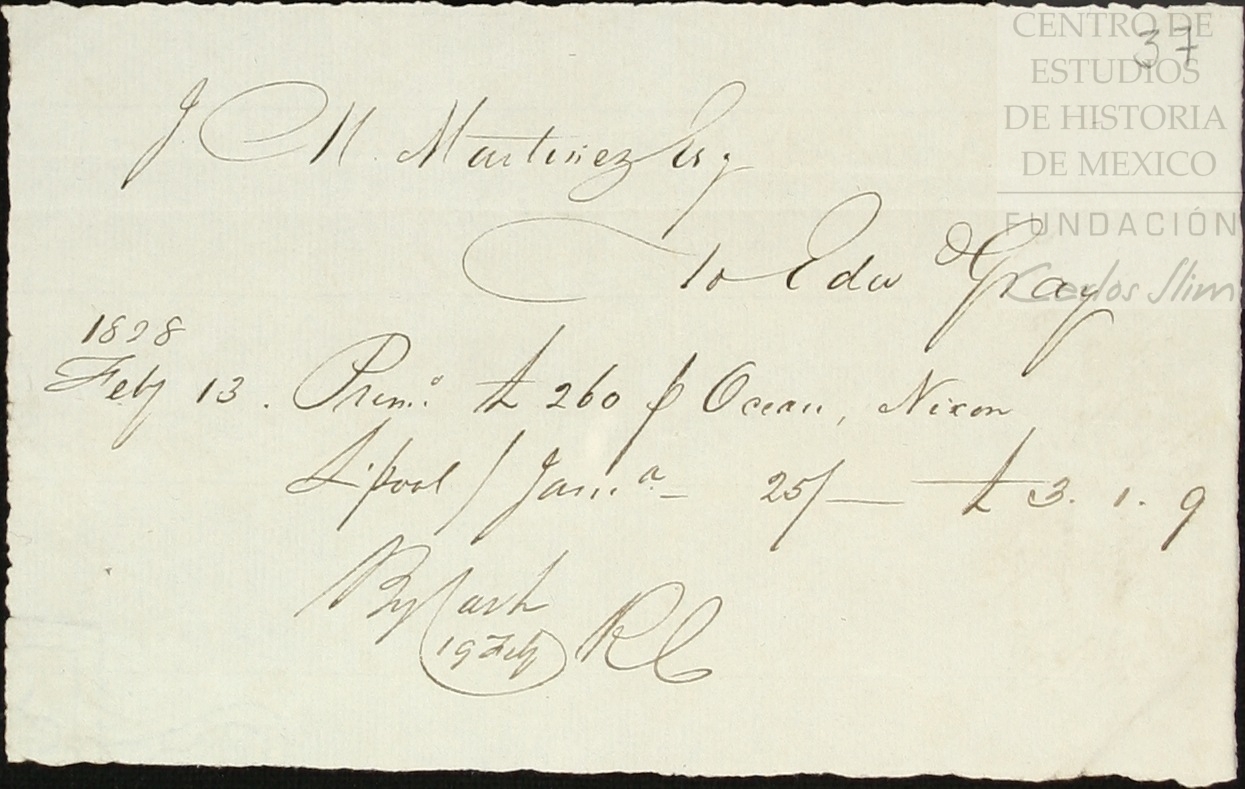 CENTRO DE
ESTUDIOS
DE HISTORIA
DE MEXICO
FUNDACIÓN
Carlos Slim
37
J. M. Martinez Esq
To Edwd Gray
1828
Feby 13. Premo £ 260 p Ocean, Nixon
L'pool / Jama 25/ — £ 3. 1. 9
By Cash
19 Feby